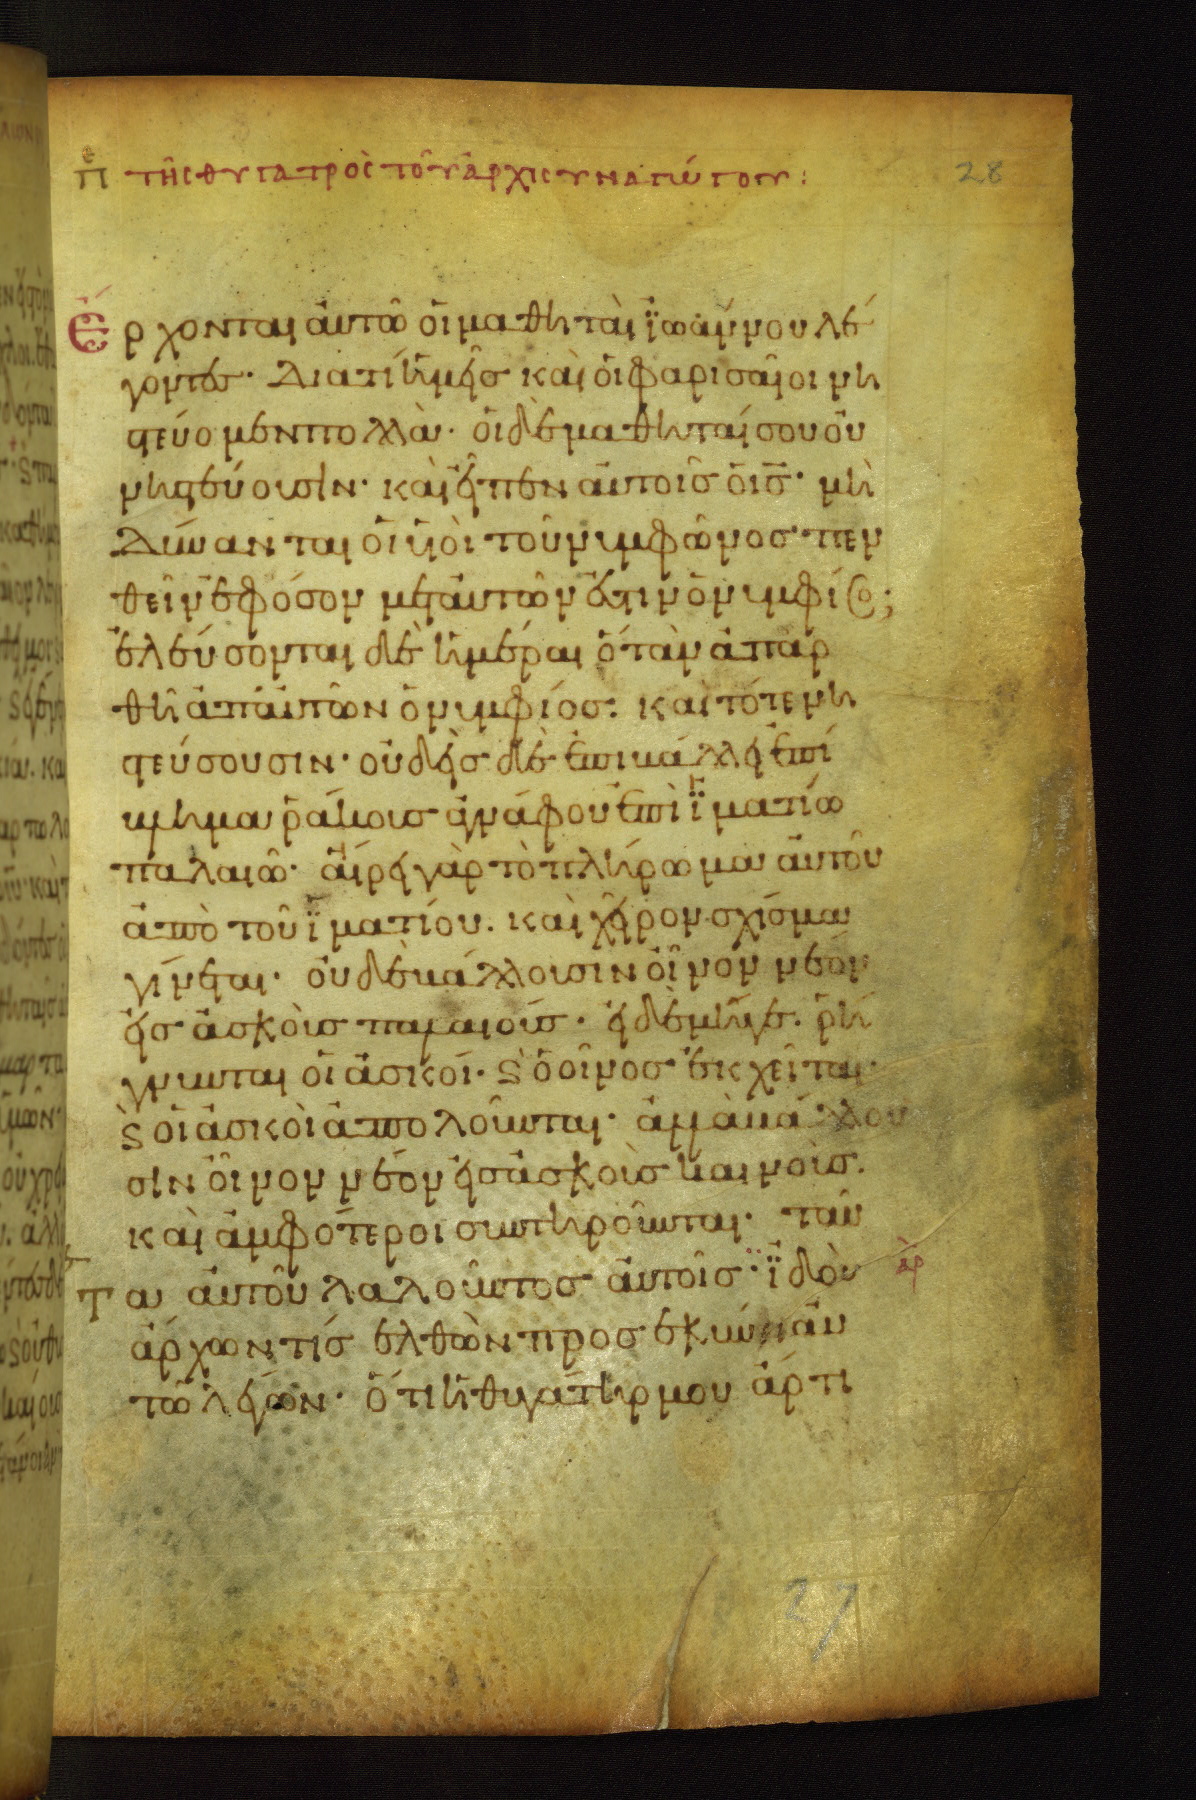 πε τῆς θυγατρὸς τοῦ ἀρχισυναγώγου :
28
Ἔρχονται αὐτῶ οἱ μαθηται ϊωάννου λέ
γοντες· Διατί ἡμεῖς καὶ οἱ φαρισαῖοι νη
στεύομεν πολλὰ· οἱ δὲ μαθηταί σου οὐ
νηστεύουσιν· καὶ εἶπεν αὐτοῖς ὁ ις̅· μὴ
Δύνανται οἱ υἱοὶ τοῦ νυμφῶνος· πεν
θεῖν ἐφόσον μετ' αὐτῶν ἐστιν ὁ νυμφίος;
ἐλεύσονται δὲ ἡμέραι ὅταν ἀπαρ
θῆ ἀπ' αὐτῶν ὁ νυμφίος· καὶ τότε νη
στεύσουσιν· οὐδεὶς δὲ ἐπιβάλλει ἐπί
βλημα ῥάκους ἀγνάφου ἐπὶ ϊματίω
παλαιῶ· αἴρει γὰρ τὸ πλήρωμα αὐτοῦ
ἀπὸ τοῦ ϊματίου. καὶ χεῖρον σχίσμα
γίνεται· οὐδὲ βάλλουσιν οἶνον νέον
εἰς ἀσκοὺς παλαιούς· εἰ δὲ μήγε. ῥή
γνυνται οἱ ἀσκοί· ϗ ὁ οἶνος ἐκχεῖται·
ϗ οἱ ἀσκοὶ ἀπολοῦνται· ἀλλὰ βάλλου
σιν οἶνον νέον εἰς ἀσκοὺς καινοὺς.
καὶ ἀμφότεροι συντηροῦνται· ταῦ
Τα αὐτοῦ λαλοῦντος αὐτοῖς ϊδοὺ αρ
ἄρχων τίς ἐλθὼν προσεκύνει αὐ
τῶ λέγων· ὅτι ἡ θυγάτηρ μου ἄρτι
27